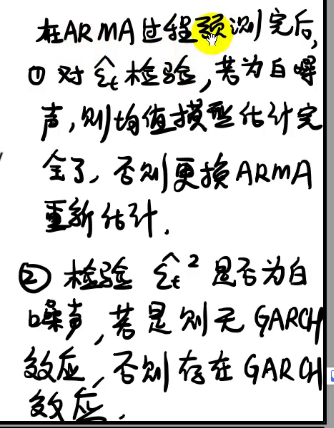 在ARMA过程预测完后,
① 对 ε̂t 检验,若为白噪
声,则均值模型估计完
全了,否则更换ARMA
重新估计.
② 检验 ε̂t² 是否为白
噪声,若是则无GARCH
效应,否则存在GARCH
效应.